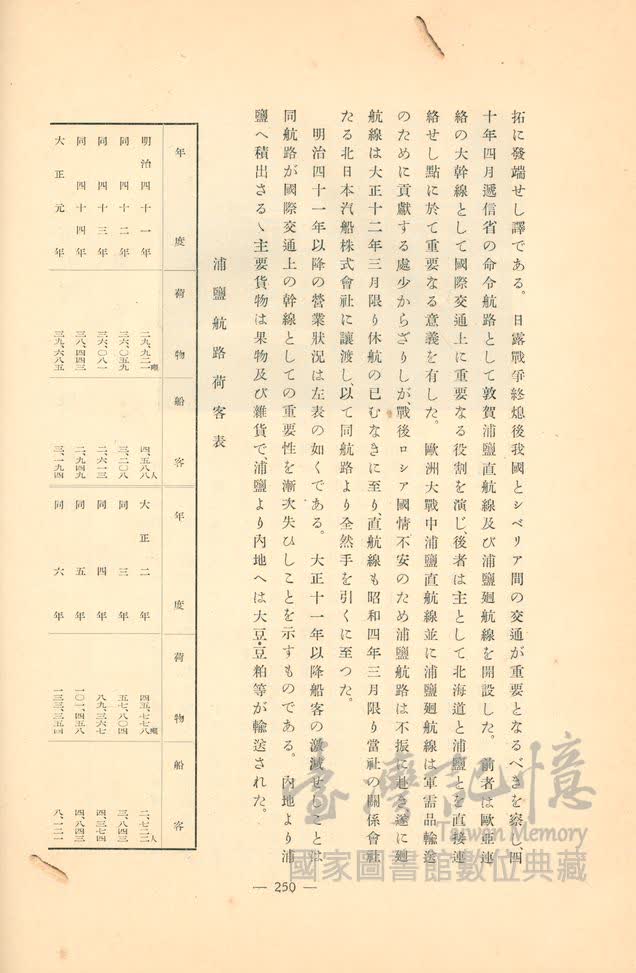 拓に發端せし譯である。日露戰爭終熄後我國とシベリア間の交通が重要となるべきを察し、四
十年四月遞信省の命令航路として敦賀浦鹽直航線及び浦鹽廻航線を開設した。前者は歐亞連
絡の大幹線として國際交通上に重要なる役割を演じ、後者は主として北海道と浦鹽とを直接連
絡せし點に於て重要なる意義を有した。歐洲大戰中浦鹽直航線並に浦鹽廻航線は軍需品輸送
のために貢獻する處少からざりしが、戰後ロシア國情不安のため浦鹽航路は不振に赴き遂に廻
航線は大正十二年三月限り休航の已むなきに至り、直航線も昭和四年三月限り當社の關係會社
たる北日本汽船株式會社に讓渡し、以て同航路より全然手を引くに至つた。
明治四十一年以降の營業狀況は左表の如くである。大正十一年以降船客の激減せしことは
同航路が國際交通上の幹線としての重要性を漸次失ひしことを示すものである。內地より浦
鹽へ積出さるゝ主要貨物は果物及び雜貨で、浦鹽より內地へは大豆・豆粕等が輸送された。
浦鹽航路荷客表
年度 荷物 船客 年度 荷物 船客
明治四十一年 二九、九二一噸 四、五八八人 大正二年 四五、七七八噸 二、七二二人
同四十二年 三六、〇五九 三、二〇八 同三年 五七、八〇四 三、八四三
同四十三年 三六、〇八一 二、六一三 同四年 八九、三六七 四、三七四
同四十四年 三八、四四三 二、九四九 同五年 一〇一、四五八 四、八四三
大正元年 三九、六八五 三、一九四 同六年 一三三、三五四 八、一二一
— 250 —
臺灣記憶
Taiwan Memory
國家圖書館數位典藏